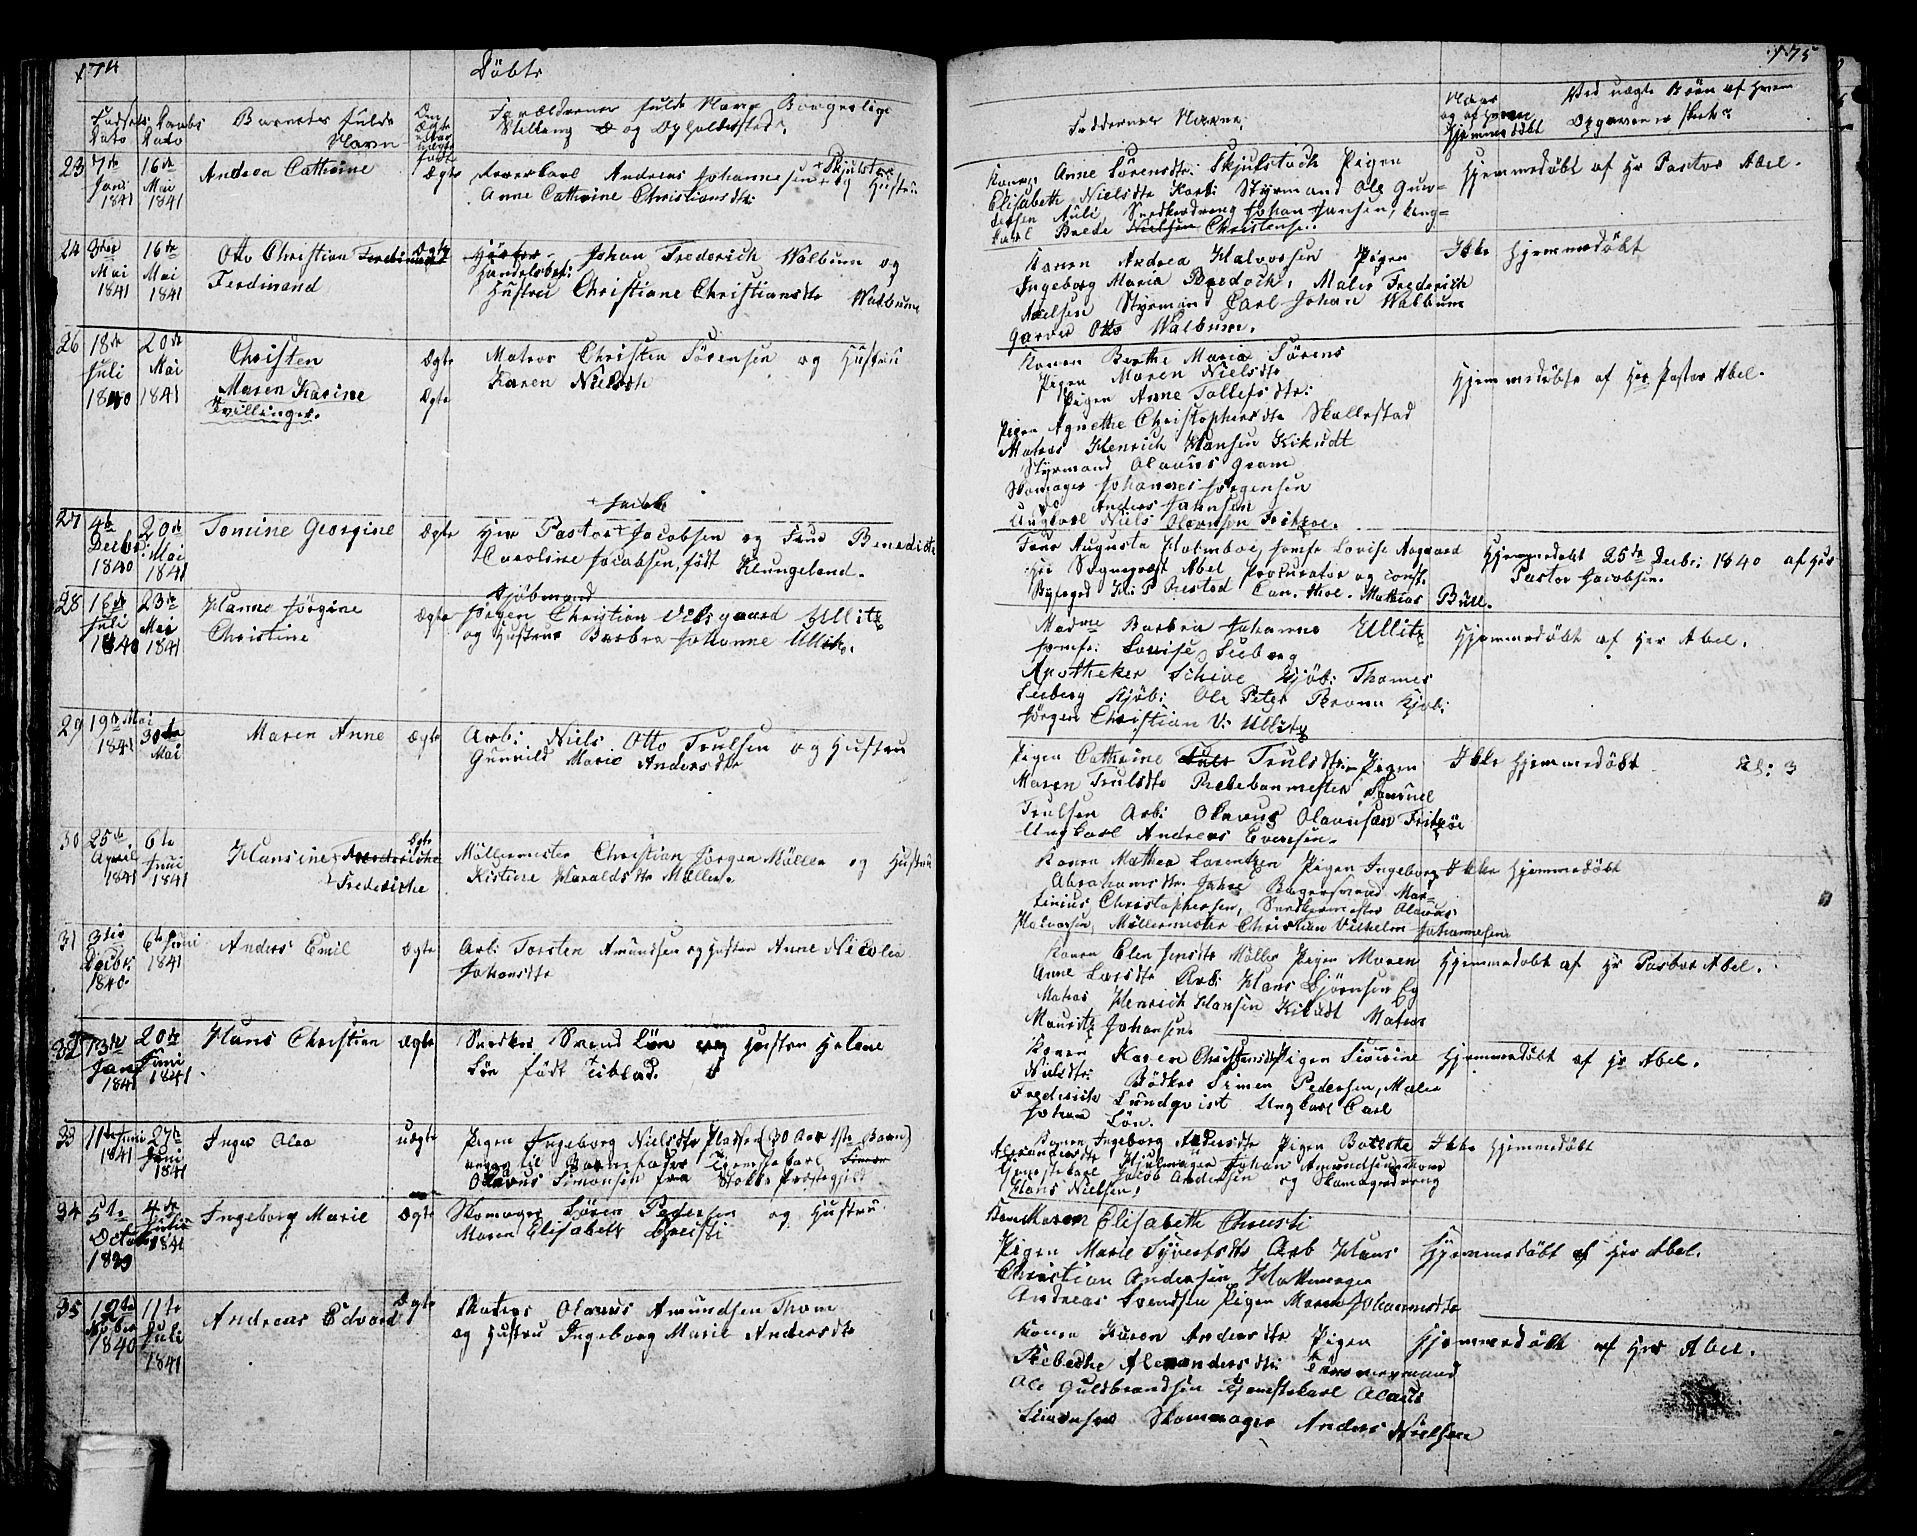 174
Døbte
Fødsels Dato
Daabs Dato
Barnets fulde Navn
Om Ægte eller uægte født
Forældrenes fulde Navn Borgerlige
Stilling og Opholdssted.
23 7de Jani 1841
16de Mai 1841
Andrea Catharine
Ægte
Andreas Johannesen + Skjulstok og Hustru
Anne Catharine Christiansdtr:
24 3die Mai 1841
16de Mai 1841
Otto Christian Ferdinand
Ferdinand
Ægte
Johan Frederich Walbum og
Handelsbet: Hustru Christiane Christiansdtr Walbum
26 18de Juli 1840
20de Mai 1841
Christen
Maren Karine
Tvillinger.
Ægte
Ægte
Matros Christen Sørensen og Hustru
Karen Nielsdtr
27 4de Decbr: 1840
20de Mai 1841
Tomine Georgine
Ægte
Herr Pastor + Jacobsen og Frue Benedicte
Caroline Jacobsen, født Klungeland.
28 16de Juli 1840
23de Mai 1841
Hanne Jørgine
Christine
Ægte
Kjøbmand
Jørgen Christian Vedsgaard Ullitz
og Hustrue Barbra Johanne Ullitz.
29 19de Mai 1841
30de Mai
Maren Anne
Ægte
Arb: Niels Otto Trulsen og Hustru
Gunnild Marie Andersdtr
30 25de April 1841
6te Juni 1841
Hansine Frederiche
Frederiche
Ægte
Møllermester Christian Jørgen Møller og Hustru
Kistine Haraldsdtr Møller.
31 3die Decbr: 1840.
6te Juni 1841
Anders Emil
Ægte
Arb: Torsten Amundsen og Hustru Anne Nicolea
Johansdtr
32 13de Jan 1841
20de Juni 1841
Hans Christian
Ægte
Snedker Svend Løn og Hustru Helene
Løn født Liblad.
33 11te Juni 1841
27de Juni 1841
Inger Olea
uægte
Pigen Ingeborg Nielsdtr Plassen (30 Aar 1ste Barn)
angav til Barnefader Tjenestekarl Simon
Olavus Simonsen fra Stokke Præstegjeld
34 5te Octob 1839
4de Julii 1841
Ingeborg Marie
Ægte
Skomager Søren Pedersen og Hustru
Maren Elisabeth Christi
35 19de 1840
11te Juli 1841
Andreas Edvard
Ægte
Matros Olavus Amundsen Thom
og Hustru Ingeborg Marie Andersdtr
175
Faddernes Navne,
Naar og af Hvem Hjemmedøbt
Ved uægte Børn af Hvem
Opgaven er skeet?
Konen Anne Sørensdtr: Skjulstock Pigen
Elisabeth Nielsdtr Styrmand Ole Gun-
dersen Auli, Snedkerdreng Johan Jansen, Ung-
karl Brede Nielsen Christensen.
Hjemmedøbt af Hr Pastor Abel.
Konen Andrea Halvorsen Pigen
Ingeborg Maria Bredoch, Maler Frederich
Axelsen Styrmand Carl Johan Walbum
Garver Otto Walbum.
Ikke Hjemmedøbt
Konen Berthe Maria Sørens
Pigen Maren Nielsdtr
Pigen Anne Tollefsdtr:
Pigen Agnethe Christophersdtr Skallestad
Matros Henrich Hansen Kikudt
Styrmand Olavus Gram
Skomager Johannes Jørgensen
Anders Jahnsen
Ungkarl Niels Olavusen Fritzøe.
Hjemmedøbte af Her Pastor Abel.
Frue Augusta Holmboe, Jomfr Lovise Aagaard
Her Sognepræst Abel Procurator og const.
Byfoged H: P Restad Can. theol. Mathias Bull.
Hjemmedøbt 25de Decbr: 1840 af Her
Pastor Jacobsen.
Madme Barbra Johanne Ullitz
Jomfr: Louise Seeberg
Apotheker Schive Kjøb: Thomes
Seeberg Kjøb: Ole Peter Kjøb:
Jørgen Christian V: Ullitz
Hjemmedøbt af Her Abel.
Pigen Cathrine Truls Trulsdtr: Pigen
Maren Trulsdtr Rebebanmester Samuel
Trulsen Arb: Olavus Olavusen Fritzøe
Ungkarl Andreas Evensen.
Ikke Hjemmedøbt
3
Konen Mathea Lorentzen Pigen Ingeborg
Abrahamsdtr. Jahre Bagersvend Mar-
tinius Christophersen, Snedkermester Olavus
Halvorsen, Møllermester Christian Vilhelm Johannesen
Ikke Hjemmedøbt
Konen Elen Jensdtr Møller Pigen Maren
Anne Larsdtr Arb: Hans Bjørnsen Eg
Matros Henrich Hansen Kikudt Matros
Mauritz Johansen.
Hjemmedøbt af Hr Pastor Abel.
Konen Karen Christensdtr Pigen Sivrine
Nielsdtr: Bødker Simen Pedersen, Maler
Frederich Lundqvist Ungkarl Carl
Johan Løn.
Hjemmedøbt af Hr Abel.
Konen Ingeborg Pigen Bolethe
Alexandersdtr Hjulmager Johan Amundsen
Tjenestekarl Jacob Andersen og Skomagerdreng
Hans Nielsen.
Ikke Hjemmedøbt
Konen Maren Elisabeth Christi
Pigen Marie Syvertsdtr Arb Hans
Christian Andersen Hattemager
Andreas Svendsen Pigen Maren Johannesdtr
Hjemmedøbt af Her Abel.
Konen Karen Andersdtr Pigen
Rebecke Alexandersdtr Tømmermand
Ole Guldbrandsen Tjenestekarl Olavus
Simonsen Skommager Anders Nielsen
Hjemmedøbt af Her Abel.